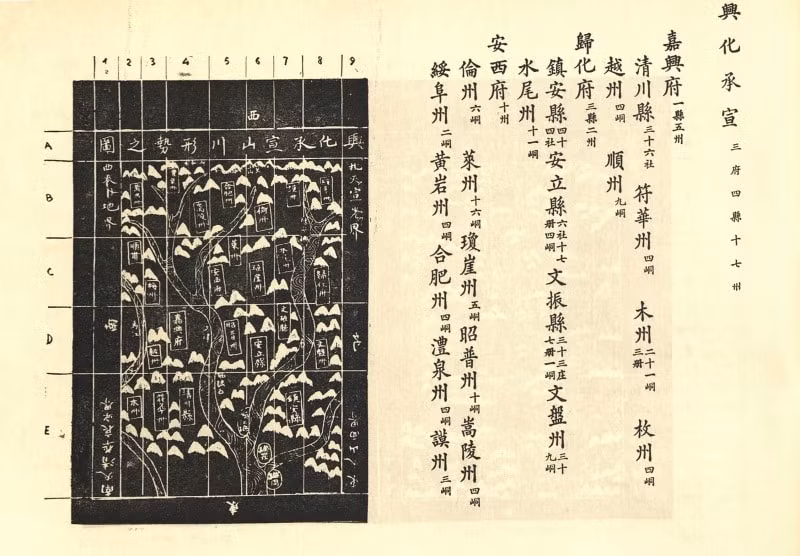 興化承宣 三府四縣十七州
嘉興府 一縣五州
清川縣 三十六社 符華州 四峒 木州 二十一峒三冊 枚州 四峒
越州 四峒 順州 九峒
歸化府 三縣二州
鎮安縣 四十四社 安立縣 六社十七冊四峒 文振縣 三十三庄七冊一峒 文盤州 三十九峒
水尾州 十一峒
安西府 十州
倫州 六峒 萊州 十六峒 瓊崖州 五峒 昭普州 十峒 嵩陵州 四峒
綏阜州 二峒 黃岩州 四峒 合肥州 四峒 澧泉州 四峒 謨州 三峒
1 2 3 4 5 6 7 8 9
西
興化承宣山川形勢之圖
A
B
C
D
E
嘉興府
安西府
安立縣
鎮安縣
清川縣
符華州
木州
越州
順州
萊州
東